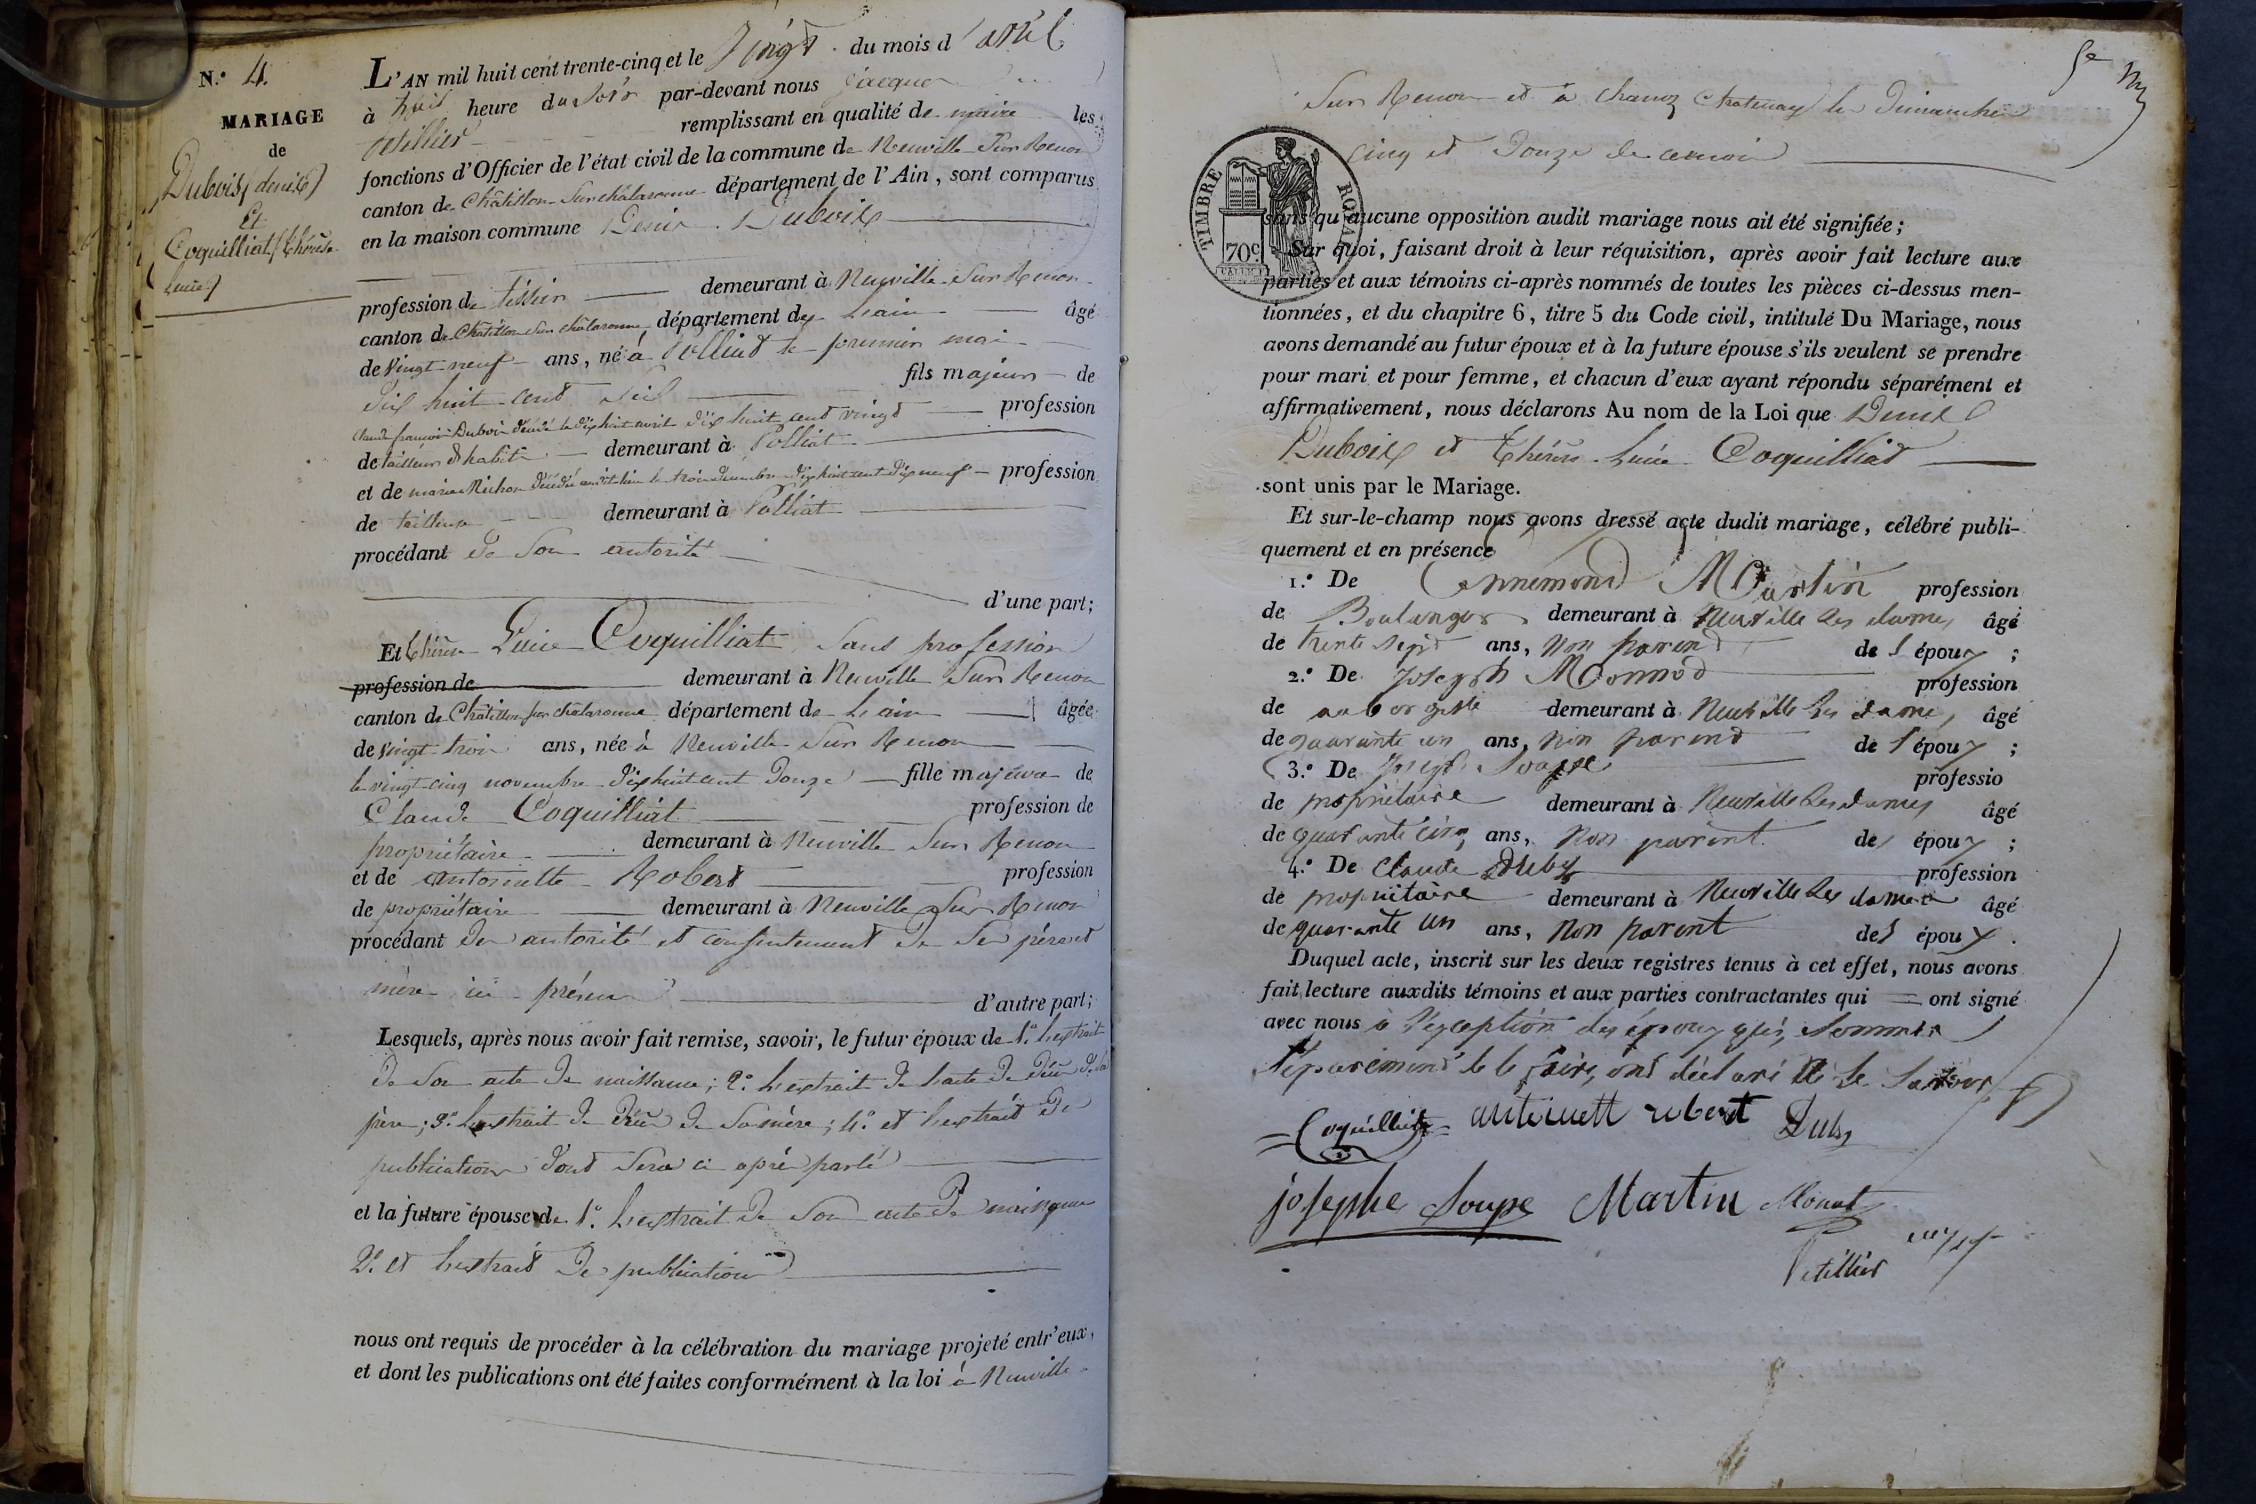 N.º 4.
MARIAGE
de
Dubois (denis)
Et
Coquilliat (thérèse
Lucie)
L'AN mil huit cent trente-cinq et le vingt du mois d'avril
à huit heure du soir par-devant nous jacques
Petillier remplissant en qualité de maire les
fonctions d'Officier de l'état civil de la commune de Neuville Sur Renon
canton de Châtillon Sur chalaronne département de l'Ain, sont comparus
en la maison commune Denis Dubois
profession de tissier demeurant à Neuville Sur Renon
canton de Châtillon Sur chalaronne département de Lain âgé
de vingt neuf ans, né à Polliat le premier mai
dix huit cent six fils majeur de
Claude françois Dubois décédé le dix huit avril dix huit cent vingt profession
de tailleur d'habits demeurant à Polliat
et de marie Michon décédée audit lieu le trois décembre dix huit cent dix neuf profession
de tailleuse demeurant à Polliat
procédant de Son autorité
d'une part;
Et thérèse Lucie Coquilliat Sans profession
profession de demeurant à Neuville Sur Renon
canton de Châtillon sur chalaronne département de Lain âgée
de vingt trois ans, née à Neuville Sur Renon
le vingt cinq novembre dix huit cent douze fille majeure de
Claude Coquilliat profession de
propriétaire demeurant à Neuville Sur Renon
et de antoinette Robert profession
de propriétaire demeurant à Neuville Sur Renon
procédant de autorité et consentement de Ses père et
mère ici présens d'autre part;
Lesquels, après nous avoir fait remise, savoir, le futur époux de 1.º Lextrait
de Son acte de naissance; 2.º Lextrait de Lacte de décès de Son
père; 3.º Lextrait de décès de Sa mère; 4.º et Lextrait de
publication dont Sera ci après parlé
et la future épouse de 1.º Lextrait de Son acte de naissance
2.º et Lextrait de publication
nous ont requis de procéder à la célébration du mariage projeté entr'eux,
et dont les publications ont été faites conformément à la loi à Neuville
Sur Renon et à Chanoz Chatenay les Dimanches
cinq et Douze de ce mois
TIMBRE ROYAL
70c
sans qu'aucune opposition audit mariage nous ait été signifiée;
Sur quoi, faisant droit à leur réquisition, après avoir fait lecture aux
parties et aux témoins ci-après nommés de toutes les pièces ci-dessus men-
tionnées, et du chapitre 6, titre 5 du Code civil, intitulé Du Mariage, nous
avons demandé au futur époux et à la future épouse s'ils veulent se prendre
pour mari et pour femme, et chacun d'eux ayant répondu séparément et
affirmativement, nous déclarons Au nom de la Loi que Denis
Dubois et Thérèse Lucie Coquilliat
sont unis par le Mariage.
Et sur-le-champ nous avons dressé acte dudit mariage, célébré publi-
quement et en présence
1.º De Ennemond Martin profession
de Boulanger demeurant à Neuville les dames âgé
de trente sept ans, non parent des époux ;
2.º De Joseph Monnod profession
de aubergiste demeurant à Neuville les dames, âgé
de quarante un ans, non parent des époux ;
3.º De Joseph Souppe professio
de propriétaire demeurant à Neuville les dames âgé
de quarante cinq ans, non parent des époux ;
4.º De Claude Duby profession
de propriétaire demeurant à Neuville les dames âgé
de quarante un ans, non parent des époux .
Duquel acte, inscrit sur les deux registres tenus à cet effet, nous avons
fait lecture auxdits témoins et aux parties contractantes qui ont signé
avec nous à l'exception des époux qui, Sommés
Séparément de le faire, ont déclaré ne le Savoir
Coquilliat antoinett robert Duby
josephe Soupe Martin Monod
Petillier